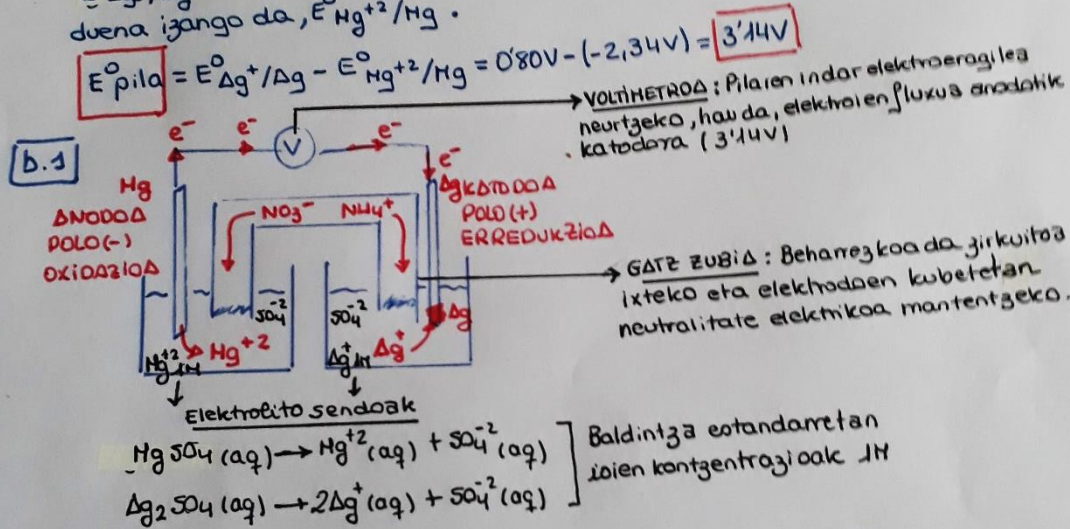 duena izango da, E°Mg+2/Mg.
E°pila = E°Ag+/Ag - E°Mg+2/Mg = 0'80V - (-2,34V) = 3'14V
VOLTIMETROA: Pilaren indar elektroeragilea
neurtzeko, hau da, elektroien fluxua anodotik
katodora (3'14V)
b.1
e- e- V e- e-
Mg
ANODOA
POLO(-)
OXIDAZIOA
NO3- NH4+
Ag KATODOA
POLO(+)
ERREDUKZIOA
GATZ ZUBIA: Beharrezkoa da zirkuitoa
ixteko eta elektrodoen kubetetan
neutralitate elektrikoa mantentzeko.
SO4-2 SO4-2 Ag
Mg+2 1M Mg+2 Ag+ 1M Ag+
Elektrolito sendoak
MgSO4 (aq) → Mg+2 (aq) + SO4-2 (aq)
Ag2SO4 (aq) → 2Ag+ (aq) + SO4-2 (aq)
Baldintza estandarretan
ioien kontzentrazioak 1M